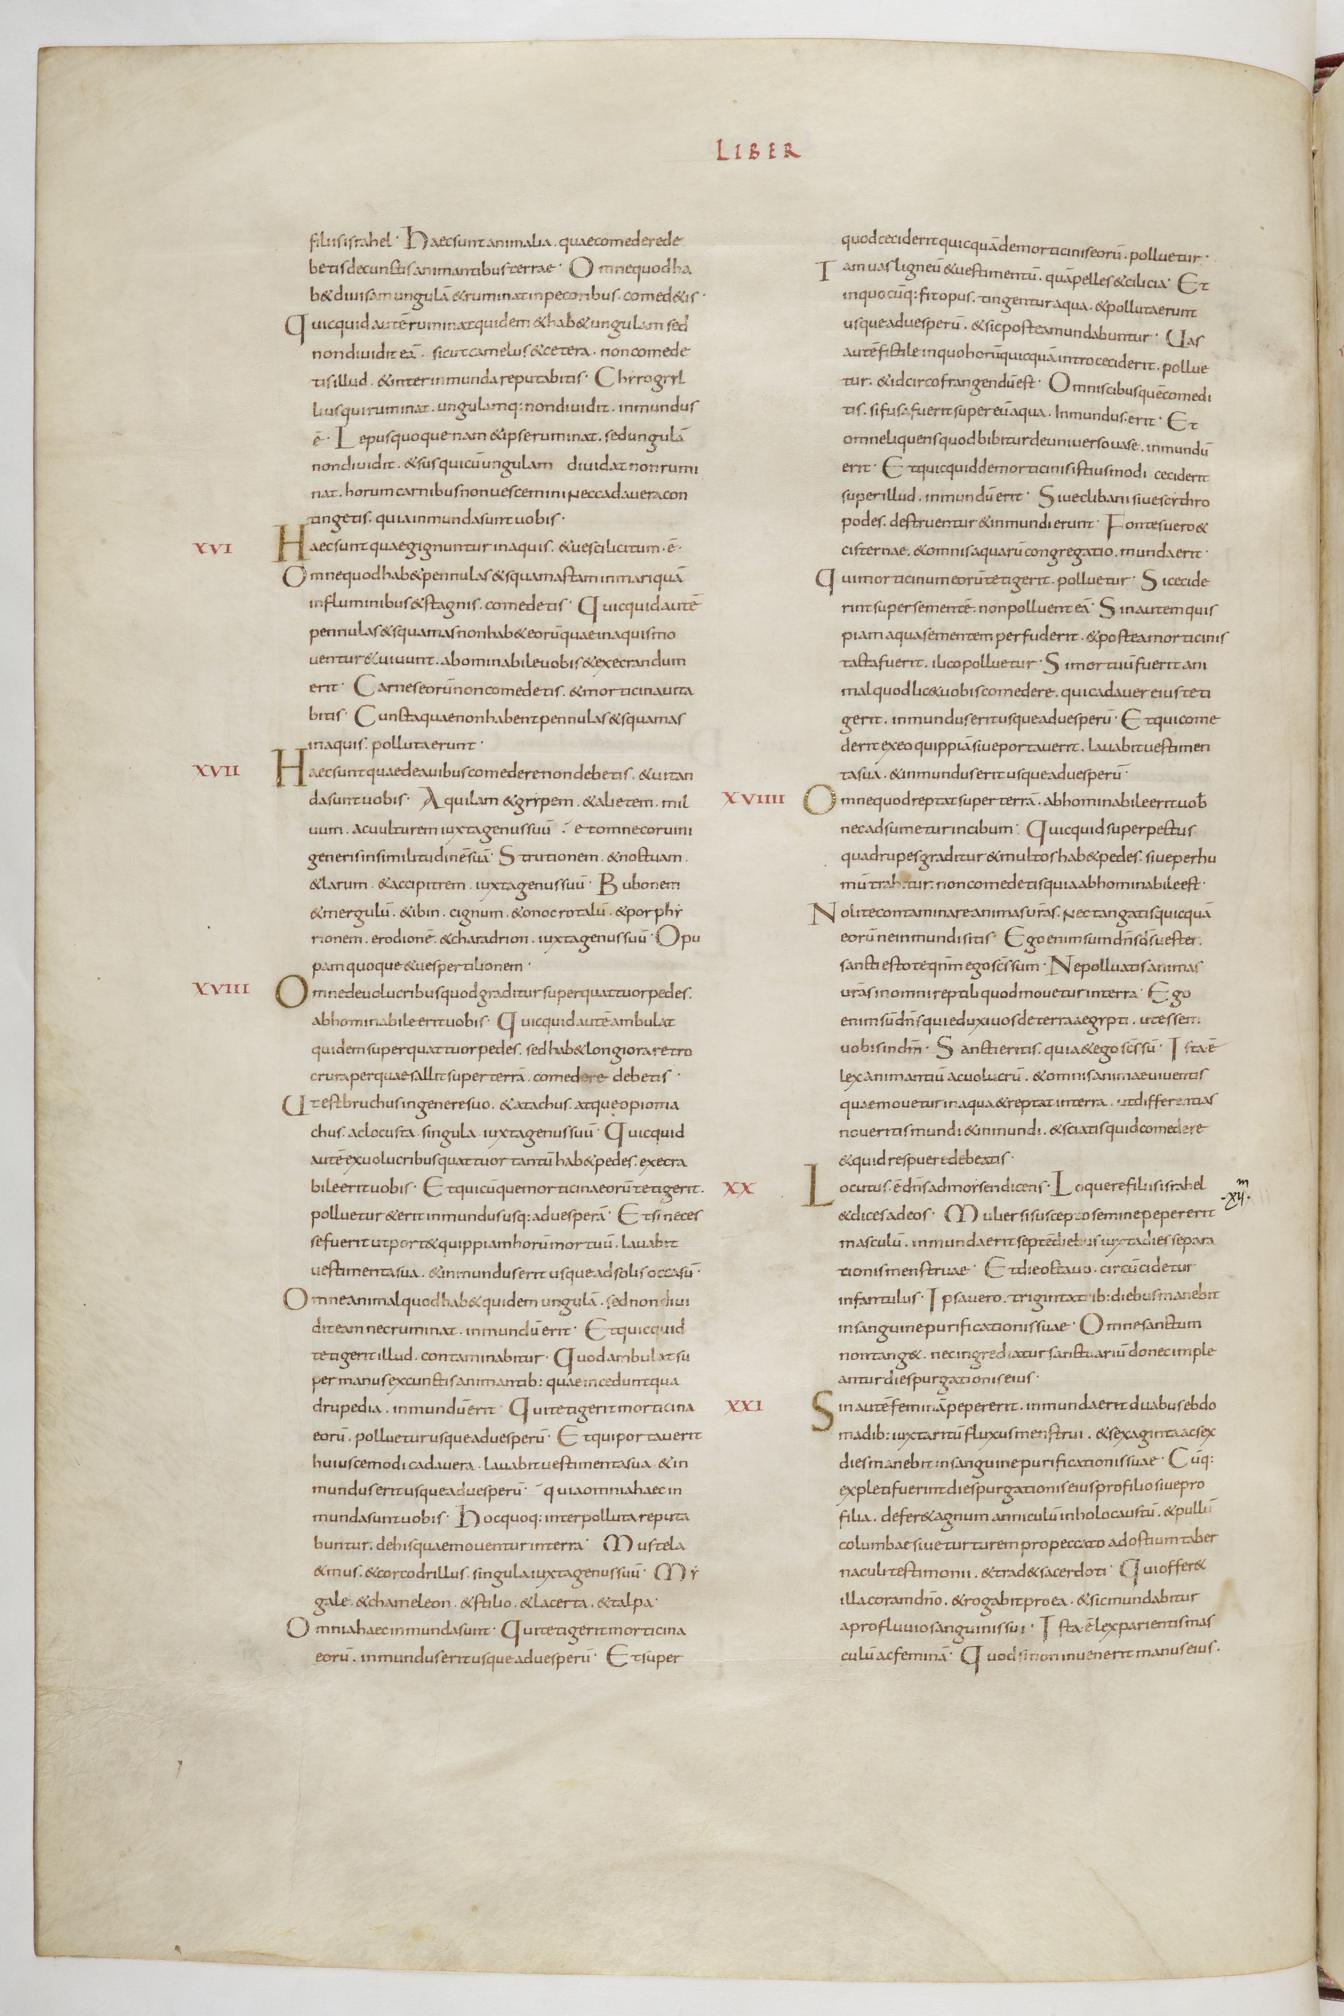 LIBER
filiis israhel · Haec sunt animalia . quae comedere de
betis de cunctis animantibus terrae · Omne quod ha
b& diuisam ungulā & ruminat in pecoribus . comed&is ·
Quicquid autē ruminat quidem & hab& ungulam sed
non diuidit eā . sicut camelus & cetera . non comede
tis illud . & inter inmunda reputabitis · Chyrogryl
lius qui ruminat . ungulamq: non diuidit . inmundus
ē · Lepus quoque nam & ipse ruminat . sed ungulā
non diuidit . & sus qui cū ungulam diuidat non rumi
nat . horum carnibus non uescemini nec cadauera con
tingetis . quia inmunda sunt uobis ·
XVI
Haec sunt quae gignuntur in aquis . & uesci licitum · ē ·
Omne quod hab& pennulas & squamas tam in mari quā
in fluminibus & stagnis . comedetis · Quicquid autē
pennulas & squamas non hab& eorū quae in aquis mo
uentur & uiuunt . abominabile uobis & execrandum
erit · Carnes eorū non comedetis . & morticina uita
bitis · Cuncta quae non habent pennulas & squamas
in aquis . polluta erunt ·
XVII
Haec sunt quae de auibus comedere non debetis . & uitan
da sunt uobis · Aquilam & grypem . & alietem . mil
uum . ac uulturem iuxta genus suū · et omne coruini
generis in similitudinē suā · Strutionem . & noctuam .
& larum . & accipitrem . iuxta genus suū · Bubonem
& mergulū . & ibin . cignum . & onocrotalū . & porphy
rionem . erodionē . & charadrion . iuxta genus suū · Opu
pam quoque & uespertilionem ·
XVIII
Omne de uolucribus quod graditur super quattuor pedes .
abhominabile erit uobis · Quicquid autē ambulat
quidem super quattuor pedes . sed hab& longiora retro
crura per quae sallit super terrā . comedere debetis ·
Ut est bruchus in genere suo . & atachus . atque opioma
chus . ac locusta . singula iuxta genus suū · Quicquid
autē ex uolucribus quattuor tantū hab& pedes . execra
bile erit uobis · Et quicūque morticina eorū tetigerit .
polluetur & erit inmundus usq: ad uesperā · Et si neces
se fuerit ut port& quippiam horū mortuū . lauabit
uestimenta sua . & inmundus erit usque ad solis occasū ·
Omne animal quod hab& quidem ungulā . sed non diui
dit eam nec ruminat . inmundū erit · Et quicquid
tetigerit illud . contaminabitur · Quod ambulat su
per manus ex cunctis animantib: quae incedunt qua
drupedia . inmundū erit · Qui tetigerit morticina
eorū . polluetur usque ad uesperū · Et qui portauerit
huiuscemodi cadauera . lauabit uestimenta sua & in
mundus erit usque ad uesperū · quia omnia haec in
munda sunt uobis · Hoc quoq: inter polluta reputa
buntur . de his quae mouentur in terra · Mustela
& mus . & corcodrillus . singula iuxta genus suū · My
gale . & chameleon . & stilio . & lacerta . & talpa ·
Omnia haec inmunda sunt · Qui tetigerit morticina
eorū . inmundus erit usque ad uesperū · Et super
quod ceciderit quicquā de morticinis eorū . polluetur ·
Tam uas ligneū & uestimentū . quā pelles & cilicia · Et
in quocūq: fit opus . tingentur aqua . & polluta erunt
usque ad uesperū . & sic postea mundabuntur · Uas
autē fictile in quo horū quicquā intro ceciderit . pollue
tur . & idcirco frangendū est · Omnis cibus quē comedi
tis . si fusa fuerit super eū aqua . Inmundus erit · Et
omne liquens quod bibitur de uniuerso uase . inmundū
erit · Et quicquid de morticinis istiusmodi ceciderit
super illud . inmundū erit · Siue clibani siue scythro
podes . destruentur & inmundi erunt · Fontes uero &
cisternae . & omnis aquarū congregatio . munda erit ·
Qui morticinum eorū tetigerit . polluetur · Si cecide
rint super sementē . non polluent eā · Sin autem quis
piam aqua sementem perfuderit . & postea morticinis
tacta fuerit . ilico polluetur · Si mortuū fuerit ani
mal quod lic& uobis comedere . qui cadauer eius teti
gerit . inmundus erit usque ad uesperū · Et qui come
derit ex eo quippiā siue portauerit . lauabit uestimen
ta sua . & inmundus erit usque ad uesperū ·
XVIIII
Omne quod reptat super terrā . abhominabile erit uob̄
nec adsumetur in cibum · Quicquid super pectus
quadrupes graditur & multos hab& pedes . siue per hu
mū trahitur . non comedetis quia abhominabile est ·
Nolite contaminare animas ur̄as . nec tangatis quicquā
eorū ne inmundi sitis · Ego enim sum dn̄s ds̄ uester .
sancti estote qn̄m ego sc̄s sum · Ne polluatis animas
ur̄as in omni reptili quod mouetur in terra · Ego
enim sū dn̄s qui eduxi uos de terra aegypti . ut essem
uobis in dm̄ · Sancti eritis . quia & ego sc̄s sū · Ista ē
lex animantiū ac uolucrū . & omnis animae uiuentis
quae mouetur in aqua & reptat in terra . ut differentias
noueritis mundi & inmundi . & sciatis quid comedere
& quid respuere debeatis ·
XX
Locutus · ē dn̄s ad moysen dicens · Loquere filiis israhel
·xij· m
& dices ad eos · Mulier si suscepto semine pepererit
masculū . inmunda erit septē diebus iuxta dies separa
tionis menstruae · Et die octauo . circūcidetur
infantulus · Ipsa uero . triginta trib: diebus manebit
in sanguine purificationis suae · Omne sanctum
non tang& . nec ingrediatur sanctuariū donec imple
antur dies purgationis eius ·
XXI
Sin autē feminā pepererit . inmunda erit duabus ebdo
madib: iuxta ritū fluxus menstrui . & sexaginta ac sex
dies manebit in sanguine purificationis suae · Cūq:
expleti fuerint dies purgationis eius pro filio siue pro
filia . defer& agnum anniculū in holocaustū . & pullū
columbae siue turturem pro peccato ad ostium taber
naculi testimonii . & trad& sacerdoti · Qui offer&
illa coram dn̄o . & rogabit pro ea . & sic mundabitur
a profluuio sanguinis sui · Ista · ē lex parientis mas
culū ac feminā · Quod si non inuenerit manus eius .